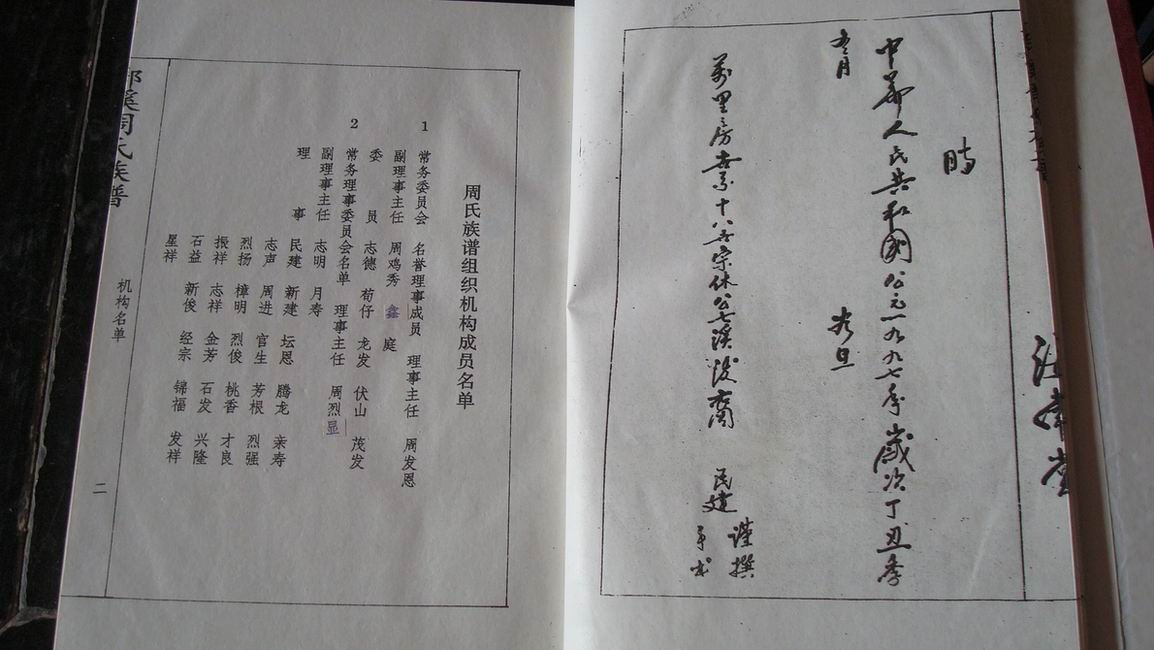 時
中華人民共和國公元一九九七年歲次丁丑季
月 榖旦
萬里之房世系十八世宗休公七溪後裔 民建 謹撰
手书
周氏族谱组织机构成员名单
1 常务委员会 名誉理事成员 理事主任 周发恩
副理事主任 周鸡秀 鑫庭
委员 志德 荀仔 龙发 伏山 茂发
2 常务理事委员会名单 理事主任 周烈显
副理事主任 志明 月寿
理事 民建 新建 坛恩 腾龙 亲寿
志声 周进 官生 芳根 烈强
烈扬 樟明 烈俊 桃香 才良
振祥 志祥 金芳 石发 兴隆
石益 新俊 经宗 锦福 发祥
星祥
溪周氏族谱 机构名单 二